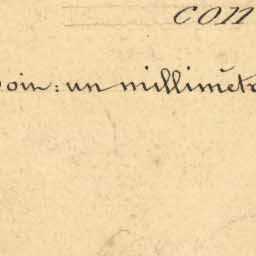 con
oin: un millimètr